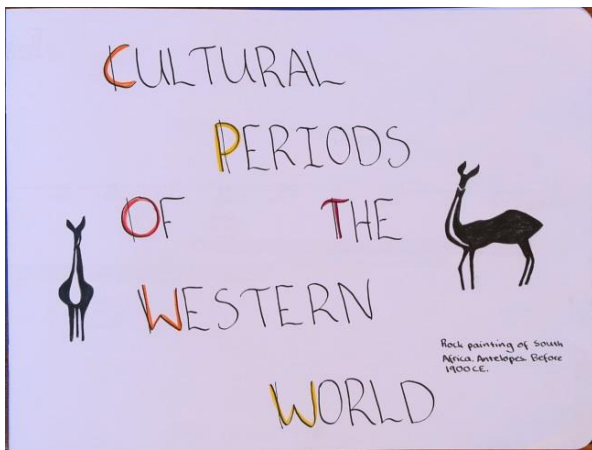 CULTURAL
PERIODS
OF THE
WESTERN
WORLD
Rock painting of South
Africa. Antelopes. Before
1900CE.